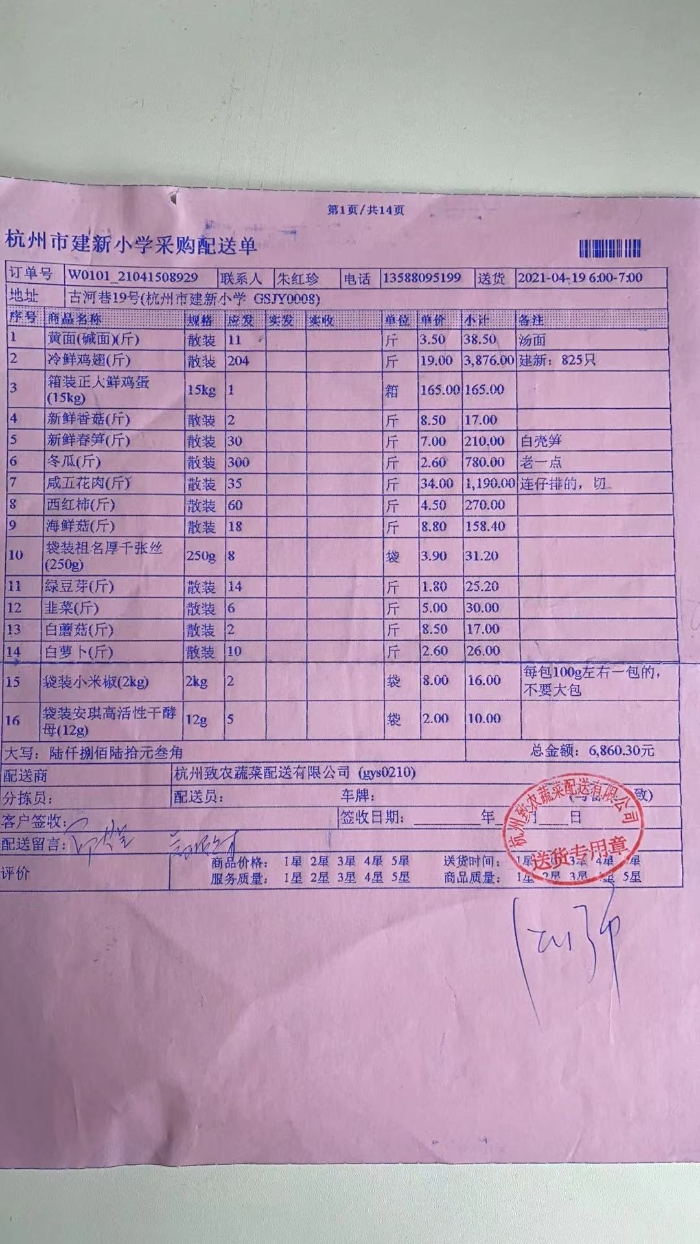 第1页/共14页
杭州市建新小学采购配送单
订单号 W0101_21041508929 联系人 朱红珍 电话 13588095199 送货 2021-04-19 6:00-7:00
地址 古河巷19号(杭州市建新小学 GSJY0008)
序号 商品名称 规格 应发 实发 实收 单位 单价 小计 备注
1 黄面(碱面)(斤) 散装 11 斤 3.50 38.50 汤面
2 冷鲜鸡翅(斤) 散装 204 斤 19.00 3,876.00 建新：825只
3 箱装正大鲜鸡蛋(15kg) 15kg 1 箱 165.00 165.00
4 新鲜香菇(斤) 散装 2 斤 8.50 17.00
5 新鲜春笋(斤) 散装 30 斤 7.00 210.00 白壳笋
6 冬瓜(斤) 散装 300 斤 2.60 780.00 老一点
7 咸五花肉(斤) 散装 35 斤 34.00 1,190.00 连仔排的，切
8 西红柿(斤) 散装 60 斤 4.50 270.00
9 海鲜菇(斤) 散装 18 斤 8.80 158.40
10 袋装祖名厚千张丝(250g) 250g 8 袋 3.90 31.20
11 绿豆芽(斤) 散装 14 斤 1.80 25.20
12 韭菜(斤) 散装 6 斤 5.00 30.00
13 白蘑菇(斤) 散装 2 斤 8.50 17.00
14 白萝卜(斤) 散装 10 斤 2.60 26.00
15 袋装小米椒(2kg) 2kg 2 袋 8.00 16.00 每包100g左右一包的，不要大包
16 袋装安琪高活性干酵母(12g) 12g 5 袋 2.00 10.00
大写：陆仟捌佰陆拾元叁角 总金额：6,860.30元
配送商 杭州致农蔬菜配送有限公司 (gys0210)
分拣员： 配送员： 车牌： 致)
客户签收： 签收日期： 年 月 日
配送留言：
评价 商品价格： 1星 2星 3星 4星 5星 送货时间： 1星 2星 3星 4星 5星
服务质量： 1星 2星 3星 4星 5星 商品质量： 1星 2星 3星 4星 5星
杭州致农蔬菜配送有限公司
送货专用章